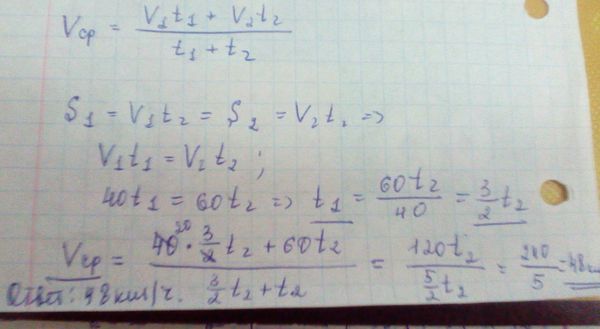 Vср = (V₁t₁ + V₂t₂) / (t₁ + t₂)
S₁ = V₁t₂ = S₂ = V₂t₂ =>
V₁t₁ = V₂t₂ ;
40t₁ = 60t₂ => t₁ = 60t₂ / 40 = 3/2 t₂
Vср = (40 20 · 3/2 t₂ + 60t₂) / (3/2 t₂ + t₂) = 120t₂ / (5/2 t₂) = 240/5 = 48
Ответ: 48 км/ч.